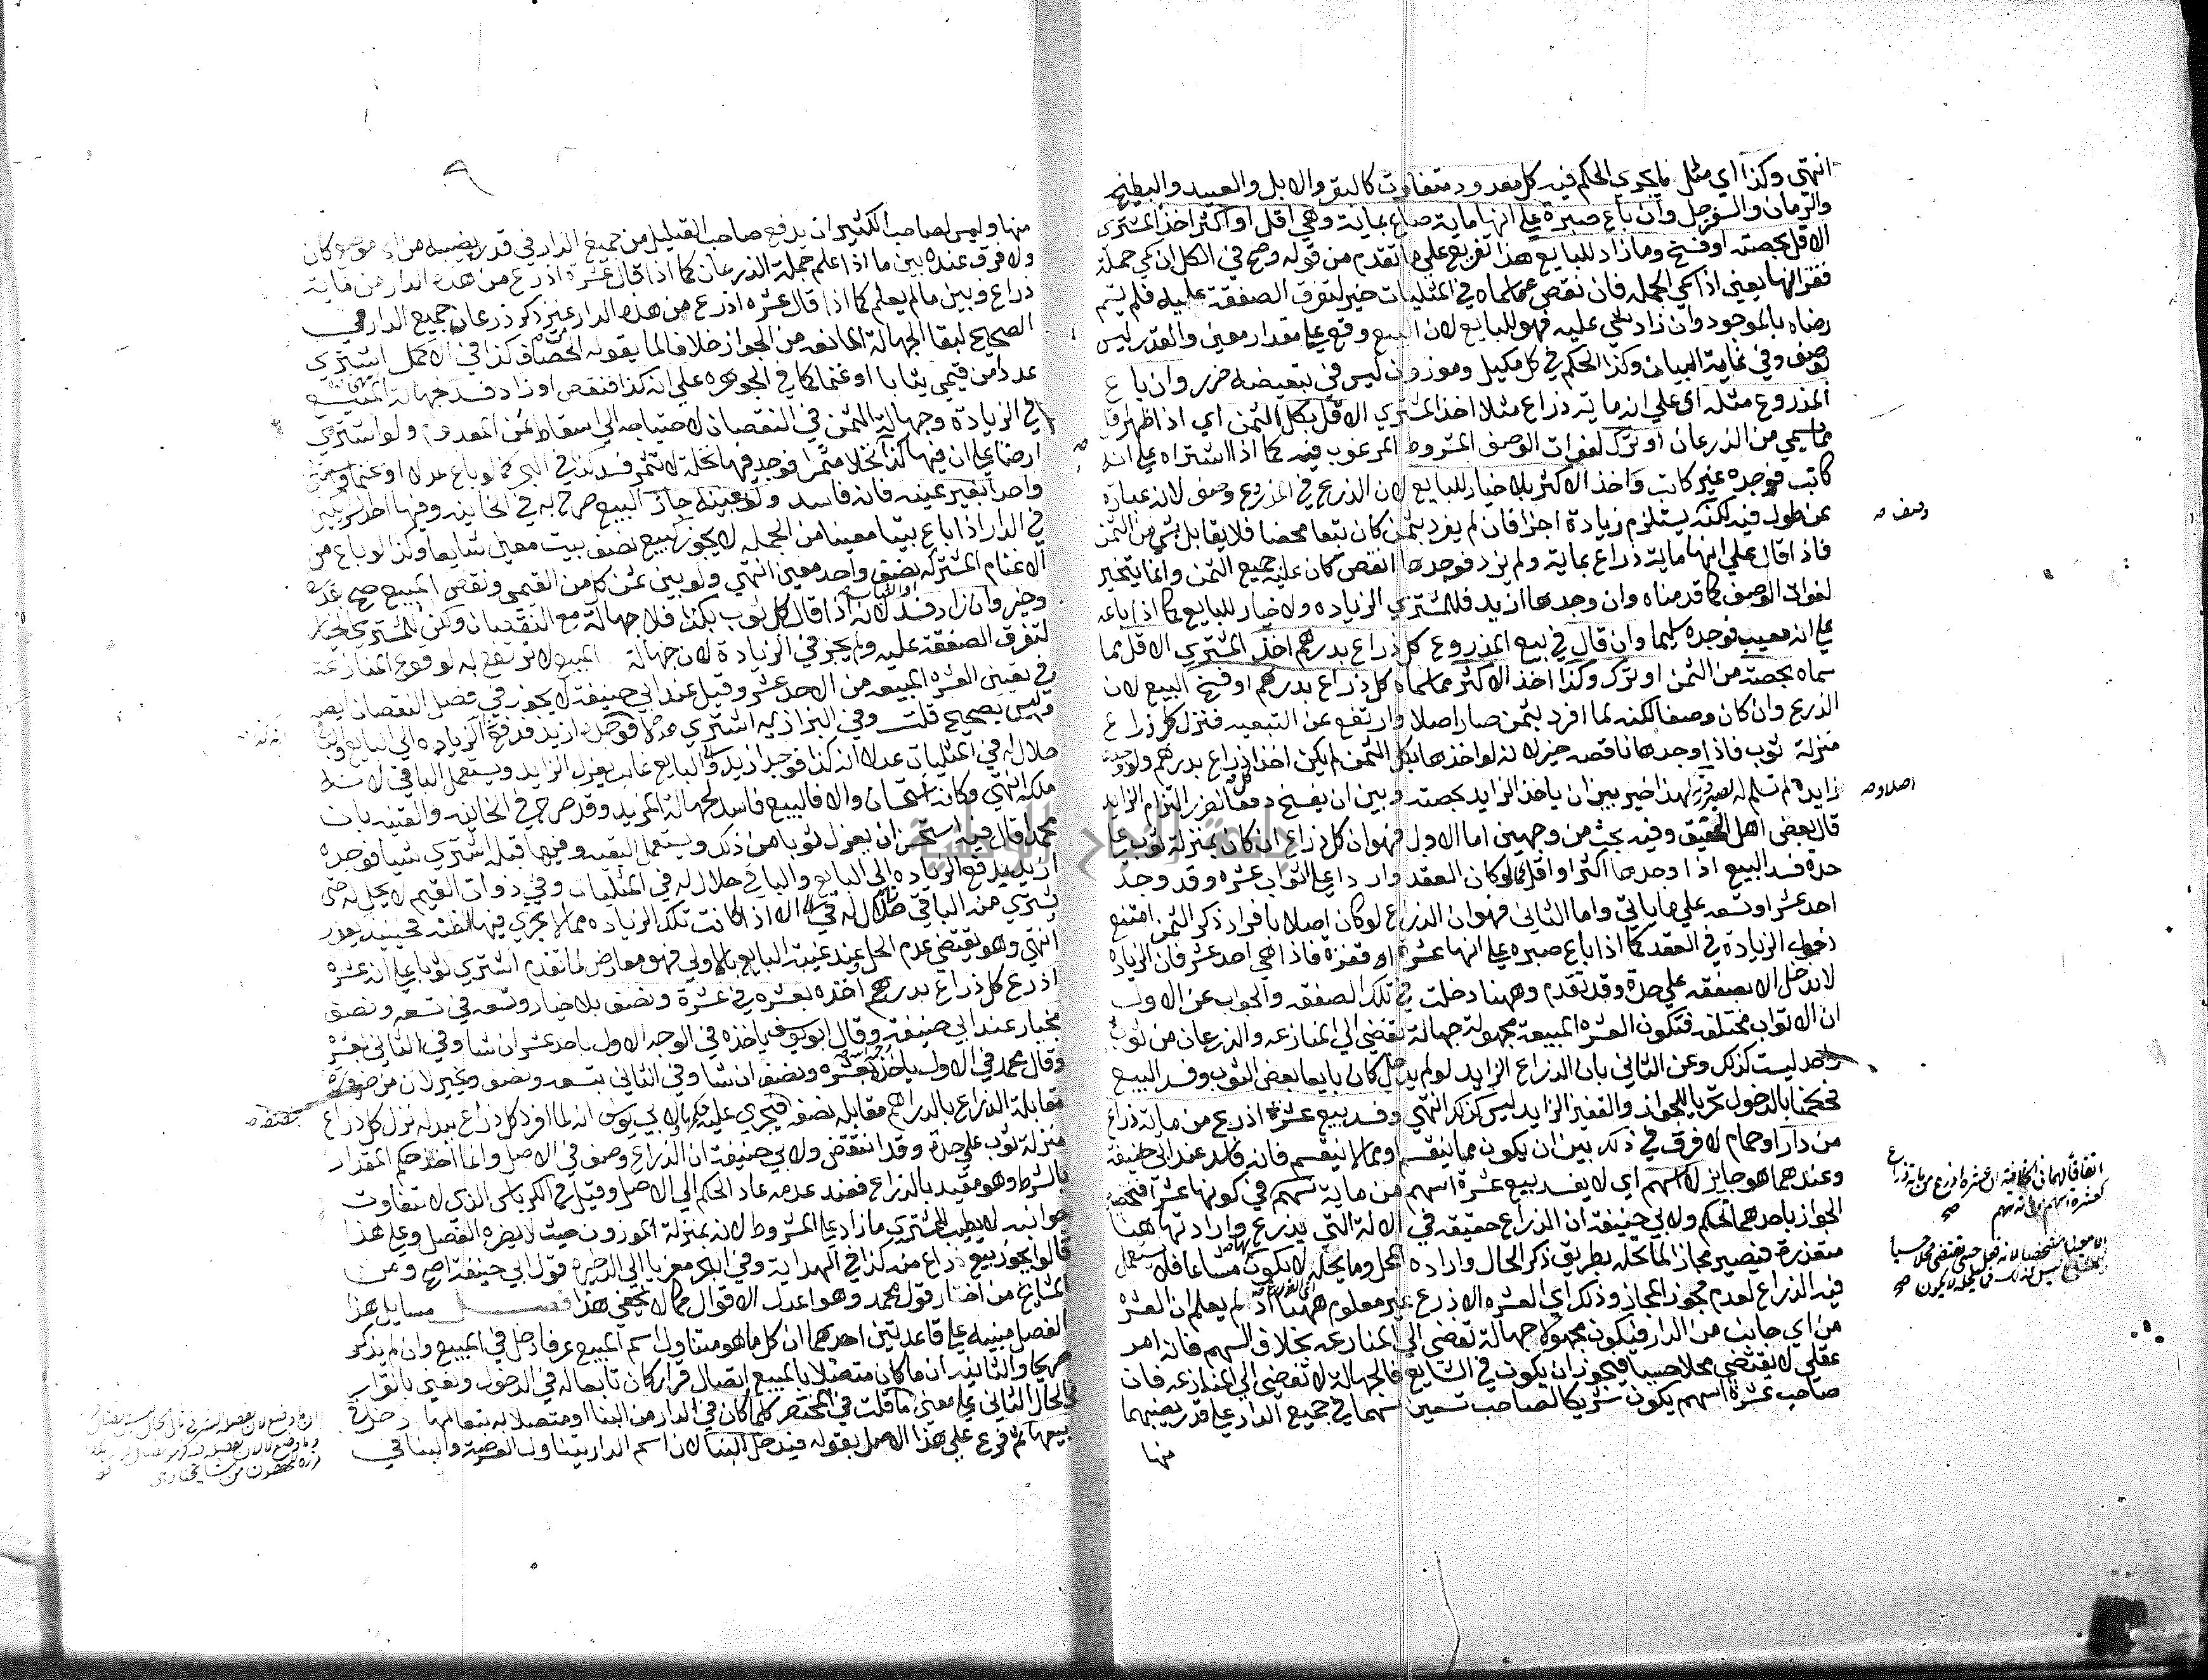 انتهى وكذا اي مثل ما يجري الحكم فيه كل معدود متفاوت كالبقر والابل والعبيد والبطيخ
والرمان والسفرجل وان باع صبرة على انها ماية صاع بماية وهي اقل او اكثر اخذ المشتري
الاقل بحصته او فسخ وما زاد للبايع هذا تفريع على ما تقدم من قوله وصح في الكل ان سمي جملة
قفزانها يعني اذا سمي الجملة فان نقص عما سماه في المثليات خير لتفرق الصفقة عليه فلم يتم
رضاه بالموجود وان زاد شي عليه فهو للبايع لان البيع وقع على مقدار معين والقدر ليس
بوصف وفي غاية البيان وكذا الحكم في كل مكيل وموزون ليس في تبعيضه ضرر وان باع
المذروع مثله اي على انه ماية ذراع مثلا اخذ المشتري الاقل بكل الثمن اي اذا ظهر اقل
مما سمي من الذرعان او ترك لفوات الوصف المشروط المرغوب فيه كما اذا اشتراه على انه
كاتب فوجده غير كاتب واخذ الاكثر بلا خيار للبايع لان الذرع في المذروع وصف لانه عبارة
عن طول فيه لكنه يستلزم زيادة اجزا فان لم يفرد بثمن كان تبعا محضا فلا يقابل بشي من الثمن
فاذا قال على انها ماية ذراع بماية ولم يزد فوجدها انقص كان عليه جميع الثمن وانما يتخير
لفوات الوصف كما قدمناه وان وجدها ازيد فللمشتري الزيادة ولا خيار للبايع كما اذا باعه
على انه معيب فوجده سليما وان قال في بيع المذروع كل ذراع بدرهم اخذ المشتري الاقل مما
سماه بحصته من الثمن او ترك وكذا اخذ الاكثر مما سماه كل ذراع بدرهم او فسخ البيع لان
الذرع وان كان وصفا لكنه لما افرد بثمن صار اصلا وارتفع عن التبعية فنزل كل ذراع
منزلة ثوب فاذا وجدها ناقصة خير لانه لو اخذها بكل الثمن لم يكن اخذا كل ذراع بدرهم ولو وجدها
زايدة لم تسلم له لهذا خير بين ان ياخذ الزايد بحصته وبين ان يفسخ دفعا لضرر التزام الزايد
قال بعض اهل التحقيق وفيه بحث من وجهين اما الاول فهو ان كل ذراع ان كان بمنزلة ثوب على
حدة فسد البيع اذا وجدها اكثر او اقل كما لو كان العقد واردا على اثواب عشرة وقد وجد
احد عشر او تسعة على ما ياتي واما الثاني فهو ان الذرع لو كان اصلا بافراد ذكر الثمن امتنع
دخول الزيادة في العقد كما اذا باع صبرة على انها عشرة اقفزة فاذا هي احد عشر فان الزيادة
لا تدخل الا بصفقة على حدة وقد تقدم وههنا دخلت في تلك الصفقة والجواب عن الاول
ان الاثواب مختلفة فتكون العشرة المبيعة مجهولة جهالة تفضي الى المنازعة والذرعان من ثوب
واحد ليست كذلك وعن الثاني بان الذراع الزايد لو لم يدخل كان بايعا بعض الثوب وفسد البيع
فحكمنا بالدخول تحريا للجواز والقفيز الزايد ليس كذلك انتهى وفسد بيع عشرة اذرع من ماية ذراع
من دار او حمام لا فرق في ذلك بين ان يكون مما ينقسم او مما لا ينقسم فانه فاسد عند ابي حنيفة
وعندهما هو جايز لا اسهم اي لا يفسد بيع عشرة اسهم من ماية سهم في كونها عشرا
الجواز باحدهما تحكم ولابي حنيفة ان الذراع حقيقة في الالة التي يذرع وارادتها هنا
متعذرة فيصير مجازا لما يحله بطريق ذكر الحال وارادة المحل وما يحله لا يكون مشاعا فلا يستعمل
فيه الذراع لعدم مجوز المجاز وذلك اي العشرة الاذرع غير معلوم ههنا اذ لم يعلم ان العشرة
من اي جانب من الدار فيكون مجهولا جهالة تفضي الى المنازعة بخلاف السهم فانه امر
عقلي لا يقتضي محلا حسيا فيجوز ان يكون في الشايع فالجهالة لا تفضي الى المنازعة فان
صاحب عشرة اسهم يكون شريكا لصاحب تسعين سهما في جميع الدار على قدر نصيبهما
منها
وصف صح
اصلا وصح
٩
منها وليس لصاحب الكثير ان يدفع صاحب القليل من جميع الدار في قدر نصيبه من اي موضع كان
ولا فرق عنده بين ما اذا علم جملة الذرعان كما اذا قال عشرة اذرع من هذه الدار من ماية
ذراع وبين ما لم يعلم كما اذا قال عشرة اذرع من هذه الدار غير ذكر ذرعان جميع الدار في
الصحيح لبقا الجهالة المانعة من الجواز خلافا لما يقوله الخصاف كذا في الاكمل اشترى
عددا من قيمي ثيابا او غنما كما في الجوهرة على انه كذا فنقص او زاد فسد لجهالة المبيع
في الزيادة وجهالة الثمن في النقصان لاحتياجه الى اسقاط ثمن المعدوم ولو اشترى
ارضا على ان فيها كذا نخلا مثمرا فوجد فيها نخلة لا تثمر فسد كذا في البحر كما لو باع عدلا او غنما واستثنى
واحدا بغير عينه فانه فاسد ولو بعينه جاز البيع صرح به في الخانية وفيها احد الشريكين
في الدار اذا باع بيتا معينا من الجملة لا يجوز كبيع نصف بيت معين شايعا وكذا لو باع من
الاغنام المشتركة نصف واحد معين انتهى ولو بين ثمن كل من القيمي ونقص المبيع صح بقدره
وخير وان زاد فسد لانه اذا قال كل ثوب بكذا فلا جهالة مع النقصان ولكن للمشتري الخيار
لتفرق الصفقة عليه ولم يجز في الزيادة لان جهالة المبيع لا ترتفع به لوقوع المنازعة
في تعيين العشرة المبيعة من الاحد عشر وقيل عند ابي حنيفة لا يجوز في فصل النقصان ايضا
وليس بصحيح قلت وفي البزازية اشترى عدلا فوجده ازيد فدفع الزيادة الى البايع والباقي
حلال له في المثليات عدلا انه كذا فوجد ازيد والبايع غايب يعزل الزايد ويستعمل الباقي لانه
ملكه انتهى وكانه استحسان والا فالبيع فاسد لجهالة المزيد وقد صرح في الخانية والقنية بان
محمدا قال فيه استحسن ان يعزل ثوبا من ذلك ويستعمل البقية وفيها قبله اشترى شيا فوجده
ازيد يدفع الزيادة الى البايع والباقي حلال له في المثليات وفي ذوات القيم لا يحل له حتى
يشتري منه الباقي الا اذا كانت تلك الزيادة مما لا يجري فيها الضنة فحينيذ يعذر
انتهى وهو يقتضي عدم الحل عند غيبة البايع بالاولى فهو معارض لما تقدم اشترى ثوبا على انه عشرة
اذرع كل ذراع بدرهم اخذه بعشرة في عشرة ونصف بلا خيار وتسعة في تسعة ونصف
بخيار عند ابي حنيفة وقال ابو يوسف ياخذه في الوجه الاول باحد عشر ان شا وفي الثاني بعشرة
وقال محمد في الاول ياخذه بعشرة ونصف ان شا وفي الثاني بتسعة ونصف ويخير لان من ضرورة
مقابلة الذراع بالدراهم مقابلة نصفه فيجري عليه حكمها ولابي يوسف انه لما افرد كل ذراع ببدل نزل كل ذراع
منزلة ثوب على حدة وقد انتقض ولابي حنيفة ان الذراع وصف في الاصل وانما اخذ حكم المقدار
بالشرط وهو مقيد بالذراع فعند عدمه عاد الحكم الى الاصل وقيل في الكرباس الذي لا تتفاوت
جوانبه لا يطيب للمشتري ما زاد على المشروط لانه بمنزلة الموزون حيث لا يضره الفصل وعلى هذا
قالوا يجوز بيع ذراع منه كذا في الهداية وفي البحر معزيا الى الذخيرة قول ابي حنيفة اصح ومن
المشايخ من اختار قول محمد وهو اعدل الاقوال كما لا يخفى هذا فصل مسايل هذا
الفصل مبنية على قاعدتين احدهما ان كل ما هو متناول اسم المبيع عرفا دخل في المبيع وان لم يذكر
صريحا والثانية ان ما كان متصلا بالمبيع اتصال قرار كان تابعا له في الدخول ونعني بالقرار
الحال الثاني على معنى ما قلت في المختصر كلما كان في الدار من البنا او متصلا به تبعا لها دخل في
بيعها ثم فرع على هذا الاصل بقوله فيدخل البنا لان اسم الدار يتناول العرصة والبنا في